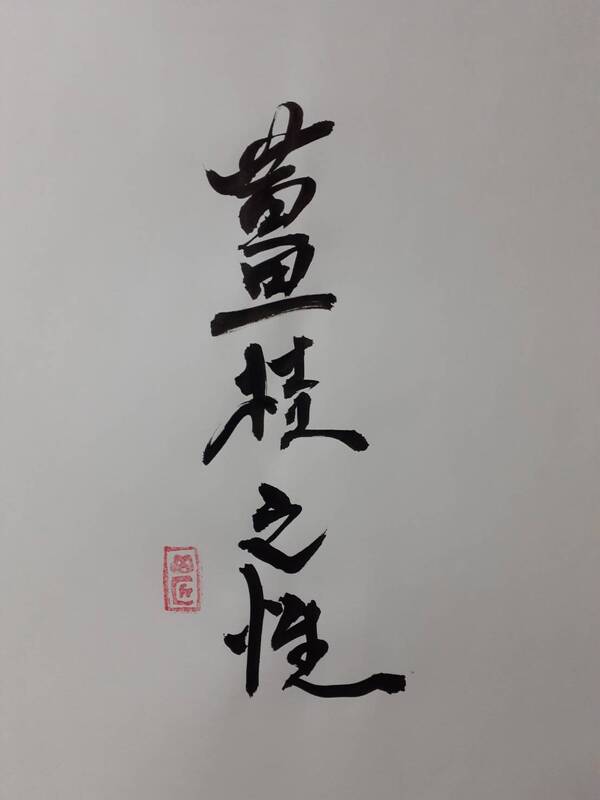 薑桂之性